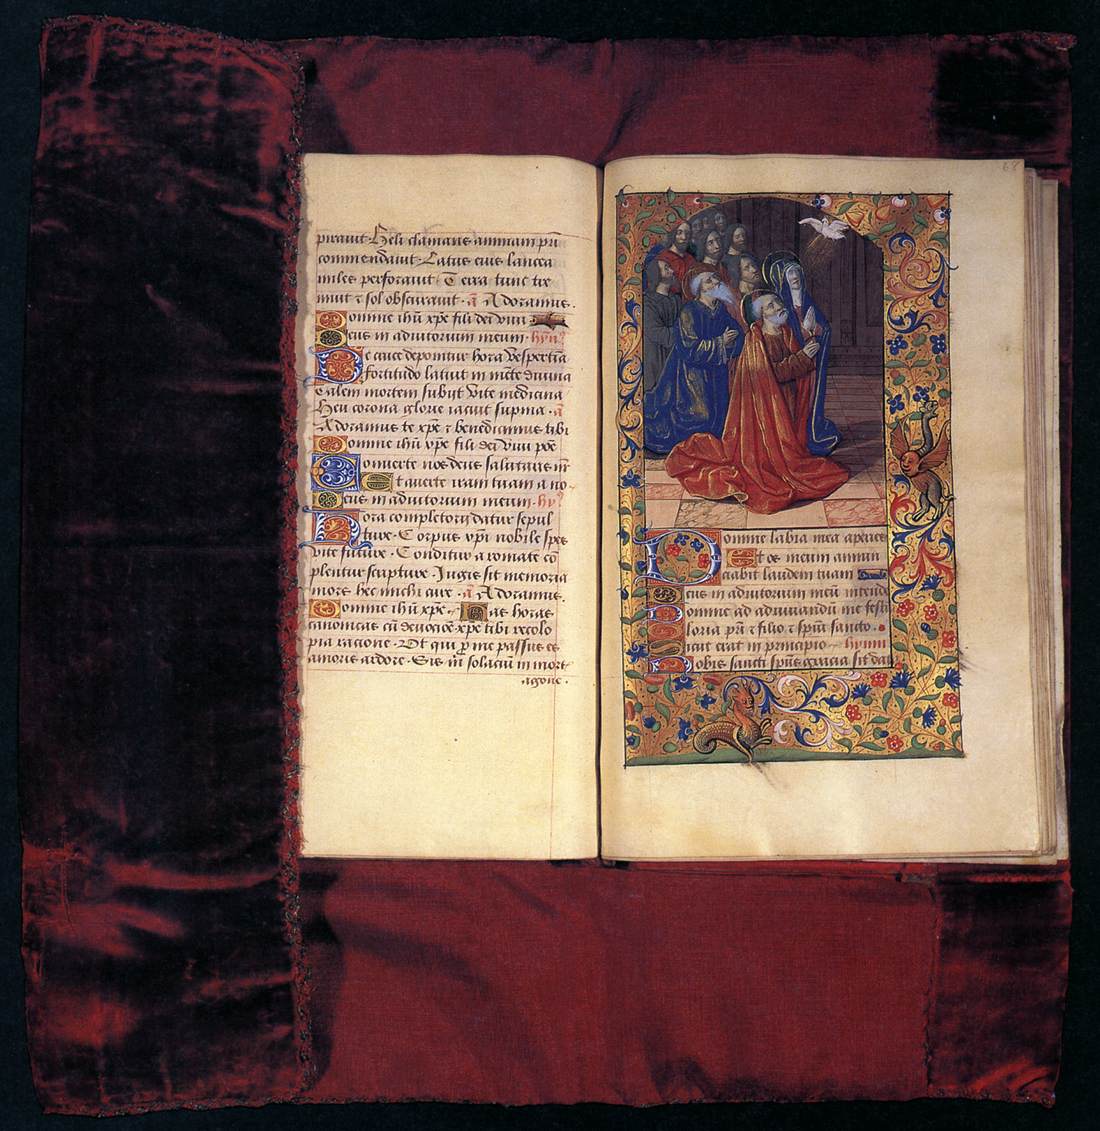 pirauit Hely clamans animam pri
commendauit Latus eius lancea
miles perforauit Terra tunc tre
muit & sol obscurauit. a Adoramus.
Domine ihu xpe fili dei viui
Deus in adiutorium meum. hyn
De cruce deponitur hora vespertia
fortitudo latuit in mete diuina
Talem mortem subiit vite medicina
Heu corona glorie iacuit supina. a
Adoramus te xpe & benedicimus tibi
Domine ihu xpe fili dei viui poe
Conuerte nos deus salutaris nr
Et auerte iram tuam a no
Deus in adiutorium meum. hy
Hora completorii datur sepul
ture. Corpus xpi nobile spes
vite future. Conditur aromate co
plentur scripture. Iugis sit memoria
mors hec michi cure. a Adoramus.
Domine ihu xpe. Has horas
canonicas cu deuocioe xpe tibi recolo
pia racione. Ut qui p me passus es
amoris ardore. Sis m solaciu in mort
agone.
Domine labia mea aperies
Et os meum annun
ciabit laudem tuam
Deus in adiutorium meu intende
Domine ad adiuuandu me festi
Gloria pri & filio & spui sancto.
Sicut erat in principio hymn
Nobis sancti spus gracia sit data